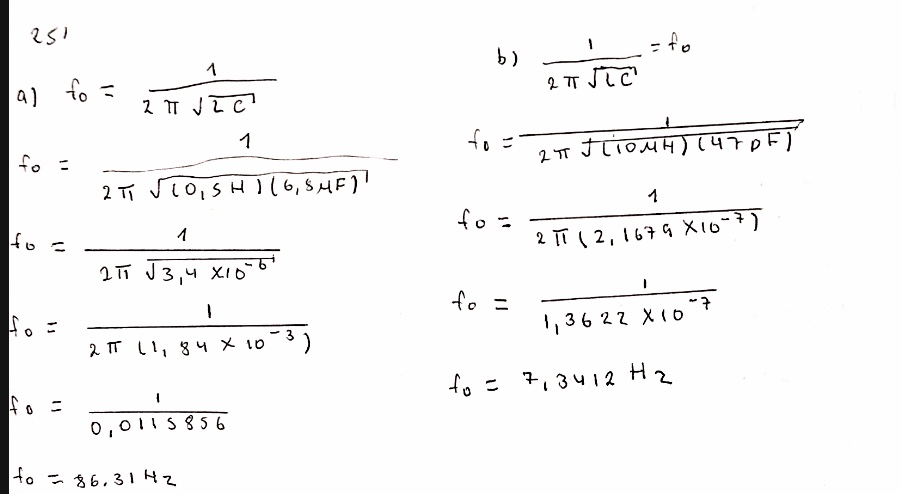 25)
a) f₀ = 1 / (2 π √(LC))
f₀ = 1 / (2π √((0,5H)(6,8μF)))
f₀ = 1 / (2π √(3,4 x10⁻⁶))
f₀ = 1 / (2π (1,84 x 10⁻³))
f₀ = 1 / 0,0115856
f₀ = 86.31 Hz
b) 1 / (2π √(LC)) = f₀
f₀ = 1 / (2π √((10μH)(47pF)))
f₀ = 1 / (2π (2,1679 x10⁻⁷))
f₀ = 1 / (1,3622 x10⁻⁷)
f₀ = 7,3412 Hz